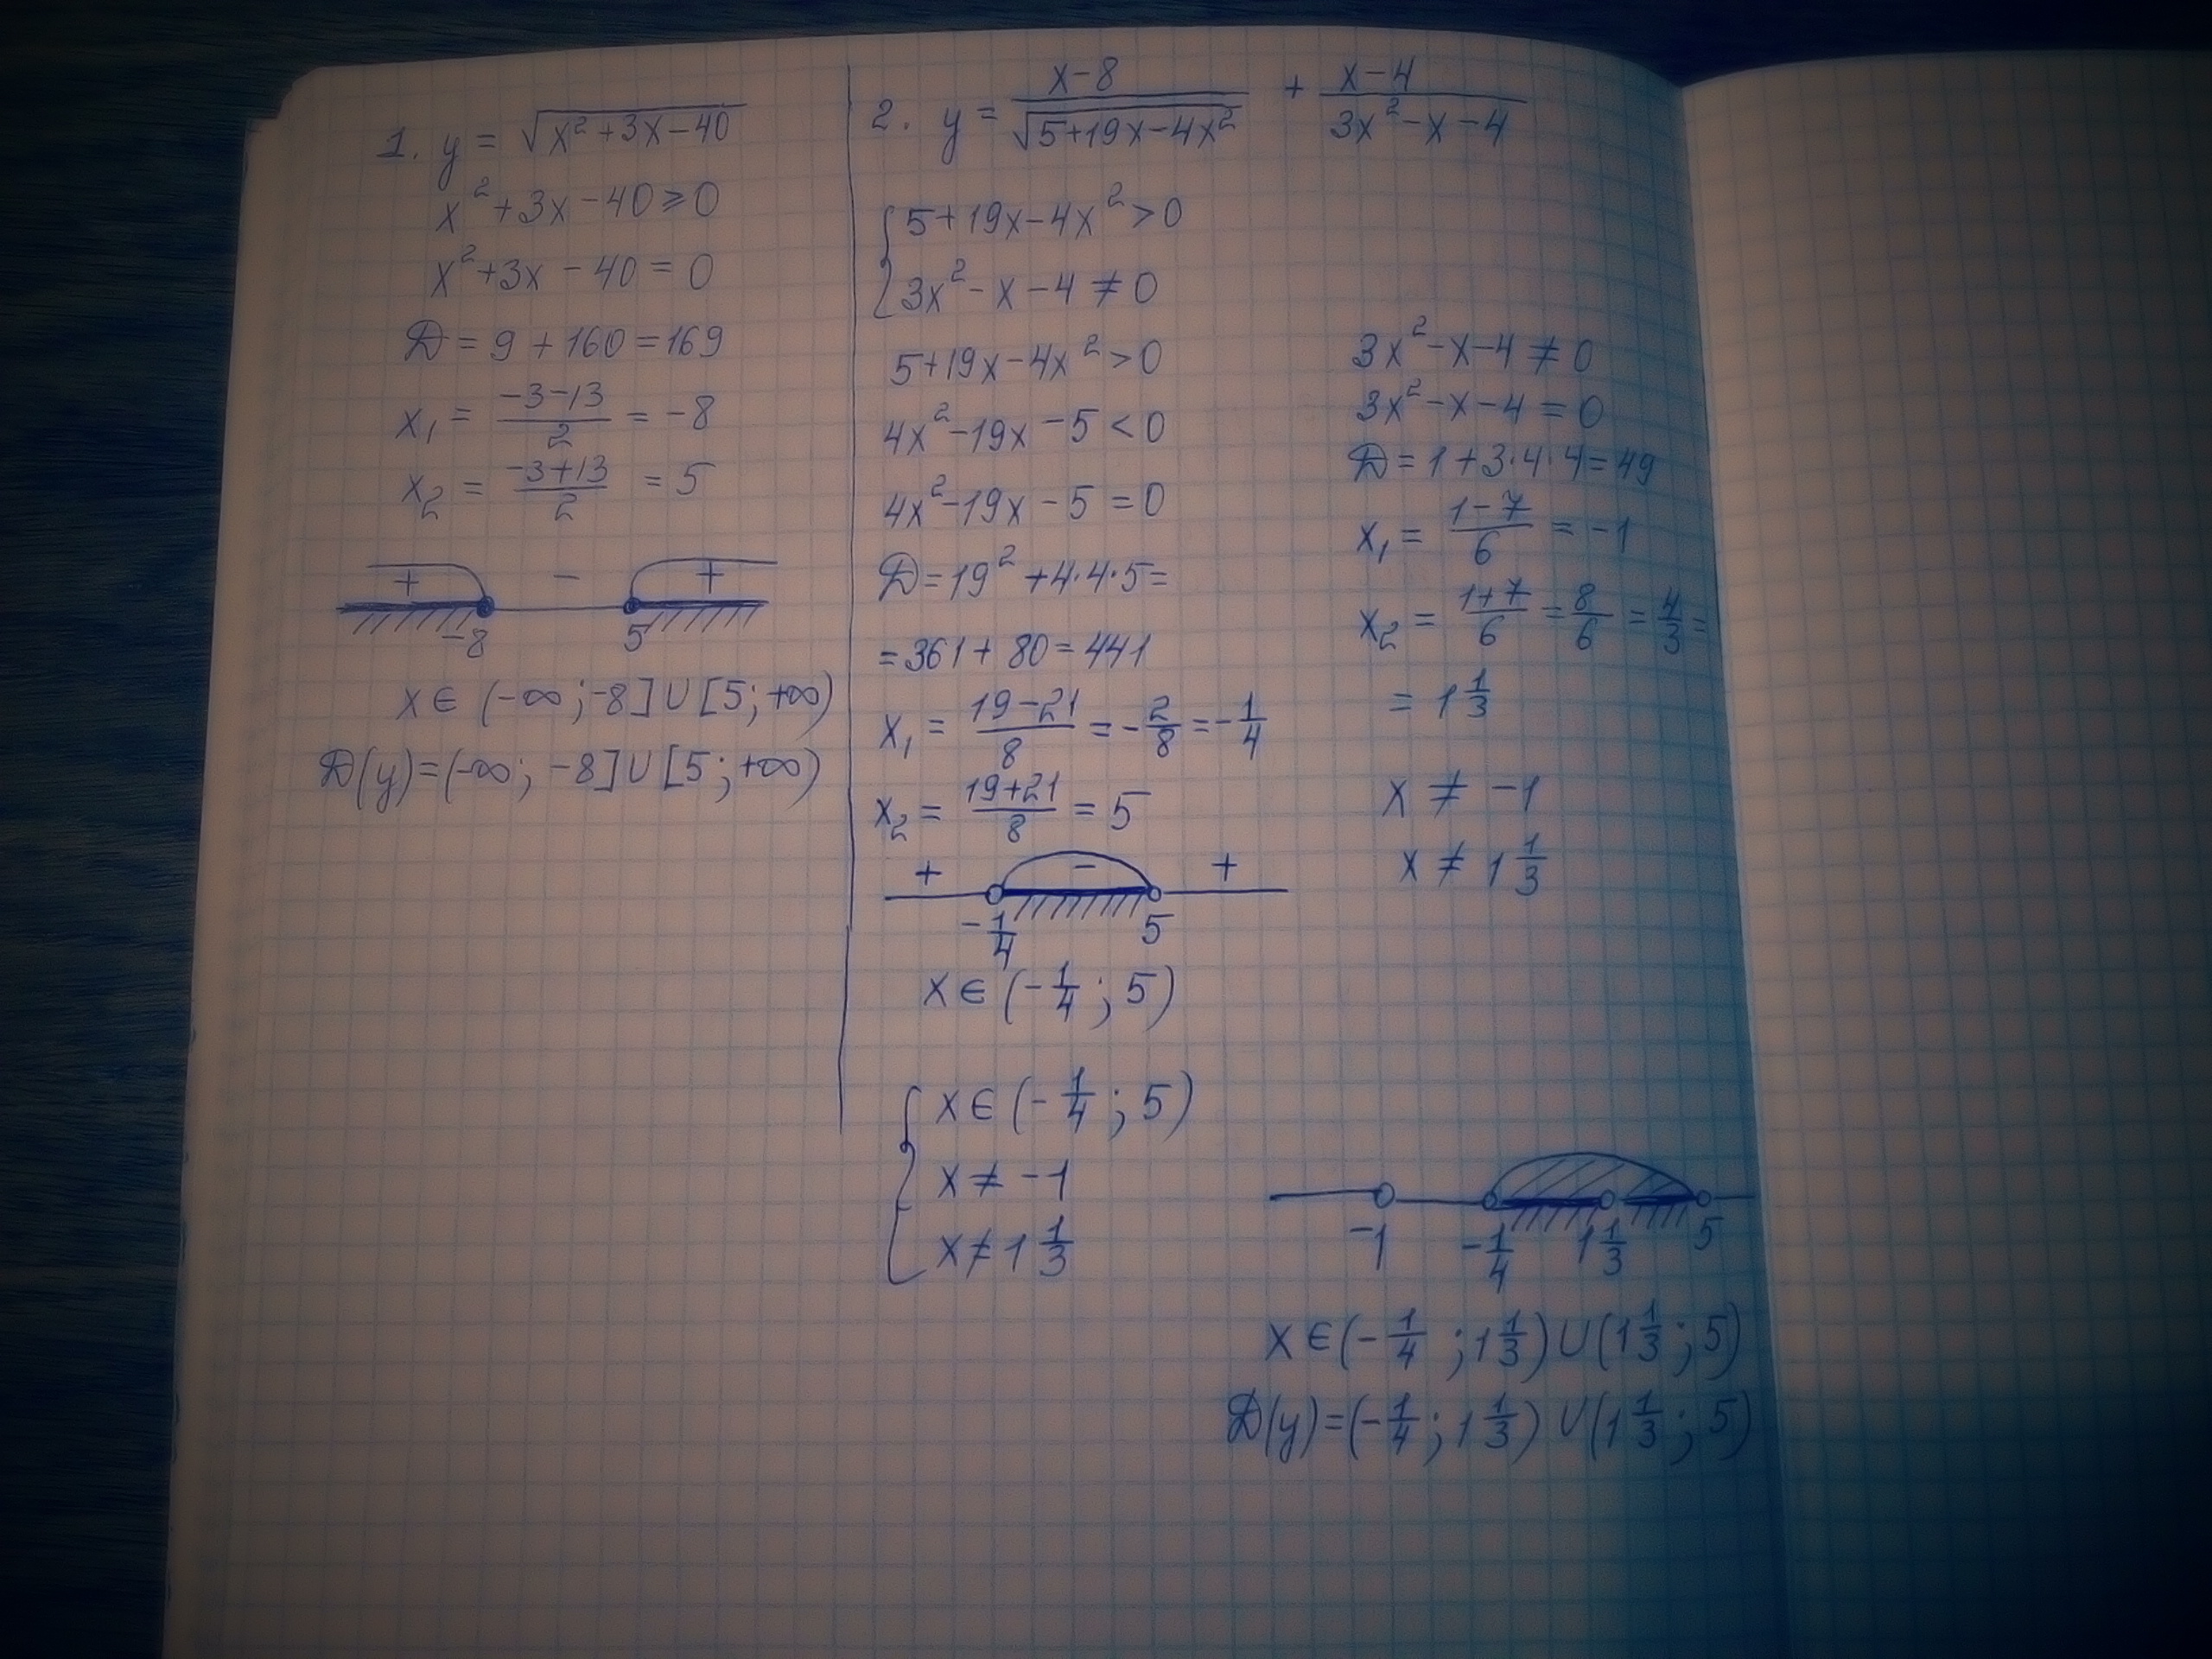 1. y = √(x²+3x-40)
x²+3x-40⩾0
x²+3x-40=0
D=9+160=169
x₁ = (-3-13)/2 = -8
x₂ = (-3+13)/2 = 5
+ - +
-8 5
x∈(-∞;-8]∪[5;+∞)
D(y)=(-∞;-8]∪[5;+∞)
2. y = (x-8)/√(5+19x-4x²) + (x-4)/(3x²-x-4)
{5+19x-4x²>0
3x²-x-4≠0
5+19x-4x²>0
4x²-19x-5<0
4x²-19x-5=0
D=19²+4·4·5=
=361+80=441
x₁ = (19-21)/8 = -2/8 = -1/4
x₂ = (19+21)/8 = 5
+ - +
-1/4 5
x∈(-1/4;5)
3x²-x-4≠0
3x²-x-4=0
D=1+3·4·4=49
x₁ = (1-7)/6 = -1
x₂ = (1+7)/6 = 8/6 = 4/3 =
= 1 1/3
x ≠ -1
x ≠ 1 1/3
{x∈(-1/4;5)
x≠-1
x≠1 1/3
-1 -1/4 1 1/3 5
x∈(-1/4;1 1/3)∪(1 1/3;5)
D(y)=(-1/4;1 1/3)∪(1 1/3;5)